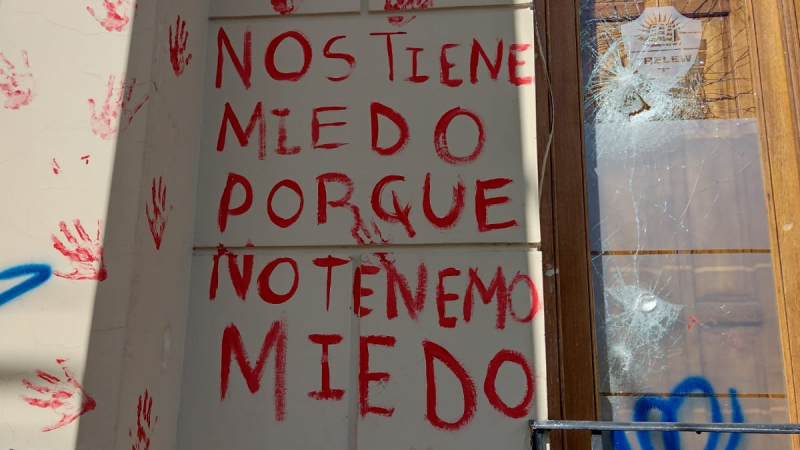 NOS TIENE
MIEDO
PORQUE
NO TENEMO
MIEDO